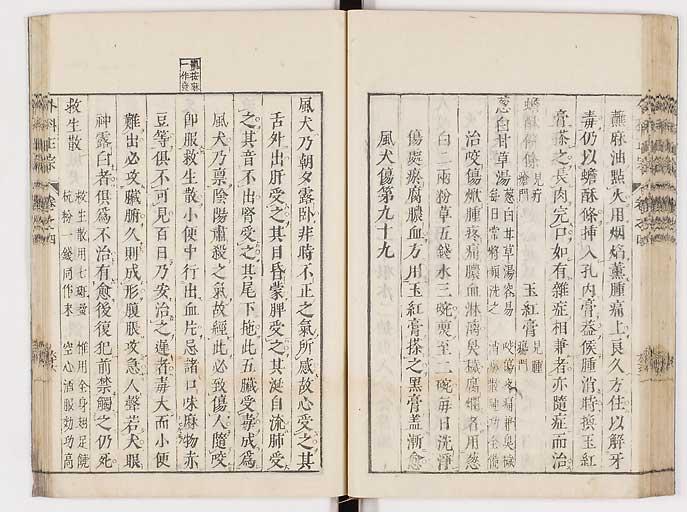 蘸麻油點火用烟焰薰腫痛上良久方住以解牙
毒仍以蟾酥條挿入孔內膏蓋候腫消時換玉紅
膏搽之長肉完口如有雜症相兼者亦隨症而治
蟾酥條 見疔瘡門 玉紅膏 見腫瘍門
葱白甘草湯 葱白甘草湯容易 咬傷疼痛
每日常將頻洗之
治咬傷瘀腫疼痛膿血淋漓臭穢腐爛者用葱
白二兩粉草五錢水三碗煎至二碗每日洗淨
傷處瘀腐膿血方用玉紅膏搽之黑膏蓋漸愈
風犬傷第九十九
風犬乃朝夕露卧非時不正之氣所感故心受之其
舌外出肝受之其目昏蒙脾受之其涎自流肺受
之其音不出腎受之其尾下拖此五臟受毒成爲
風犬乃禀陰陽肅殺之氣故經此必致傷人隨咬
卽服救生散小便中行出血片忌諸口味麻物赤
豆等俱不可見百日乃安治之遲者毒大而小便
難出必攻臟腑久則成形腹脹攻急人聲若犬眼
神露白者俱爲不治有愈後復犯前禁觸之仍死
救生散 救生散用七斑蝥 惟用全身翅足饒
杭粉一錢同作末 空心酒服効功高
外科正宗 卷之四